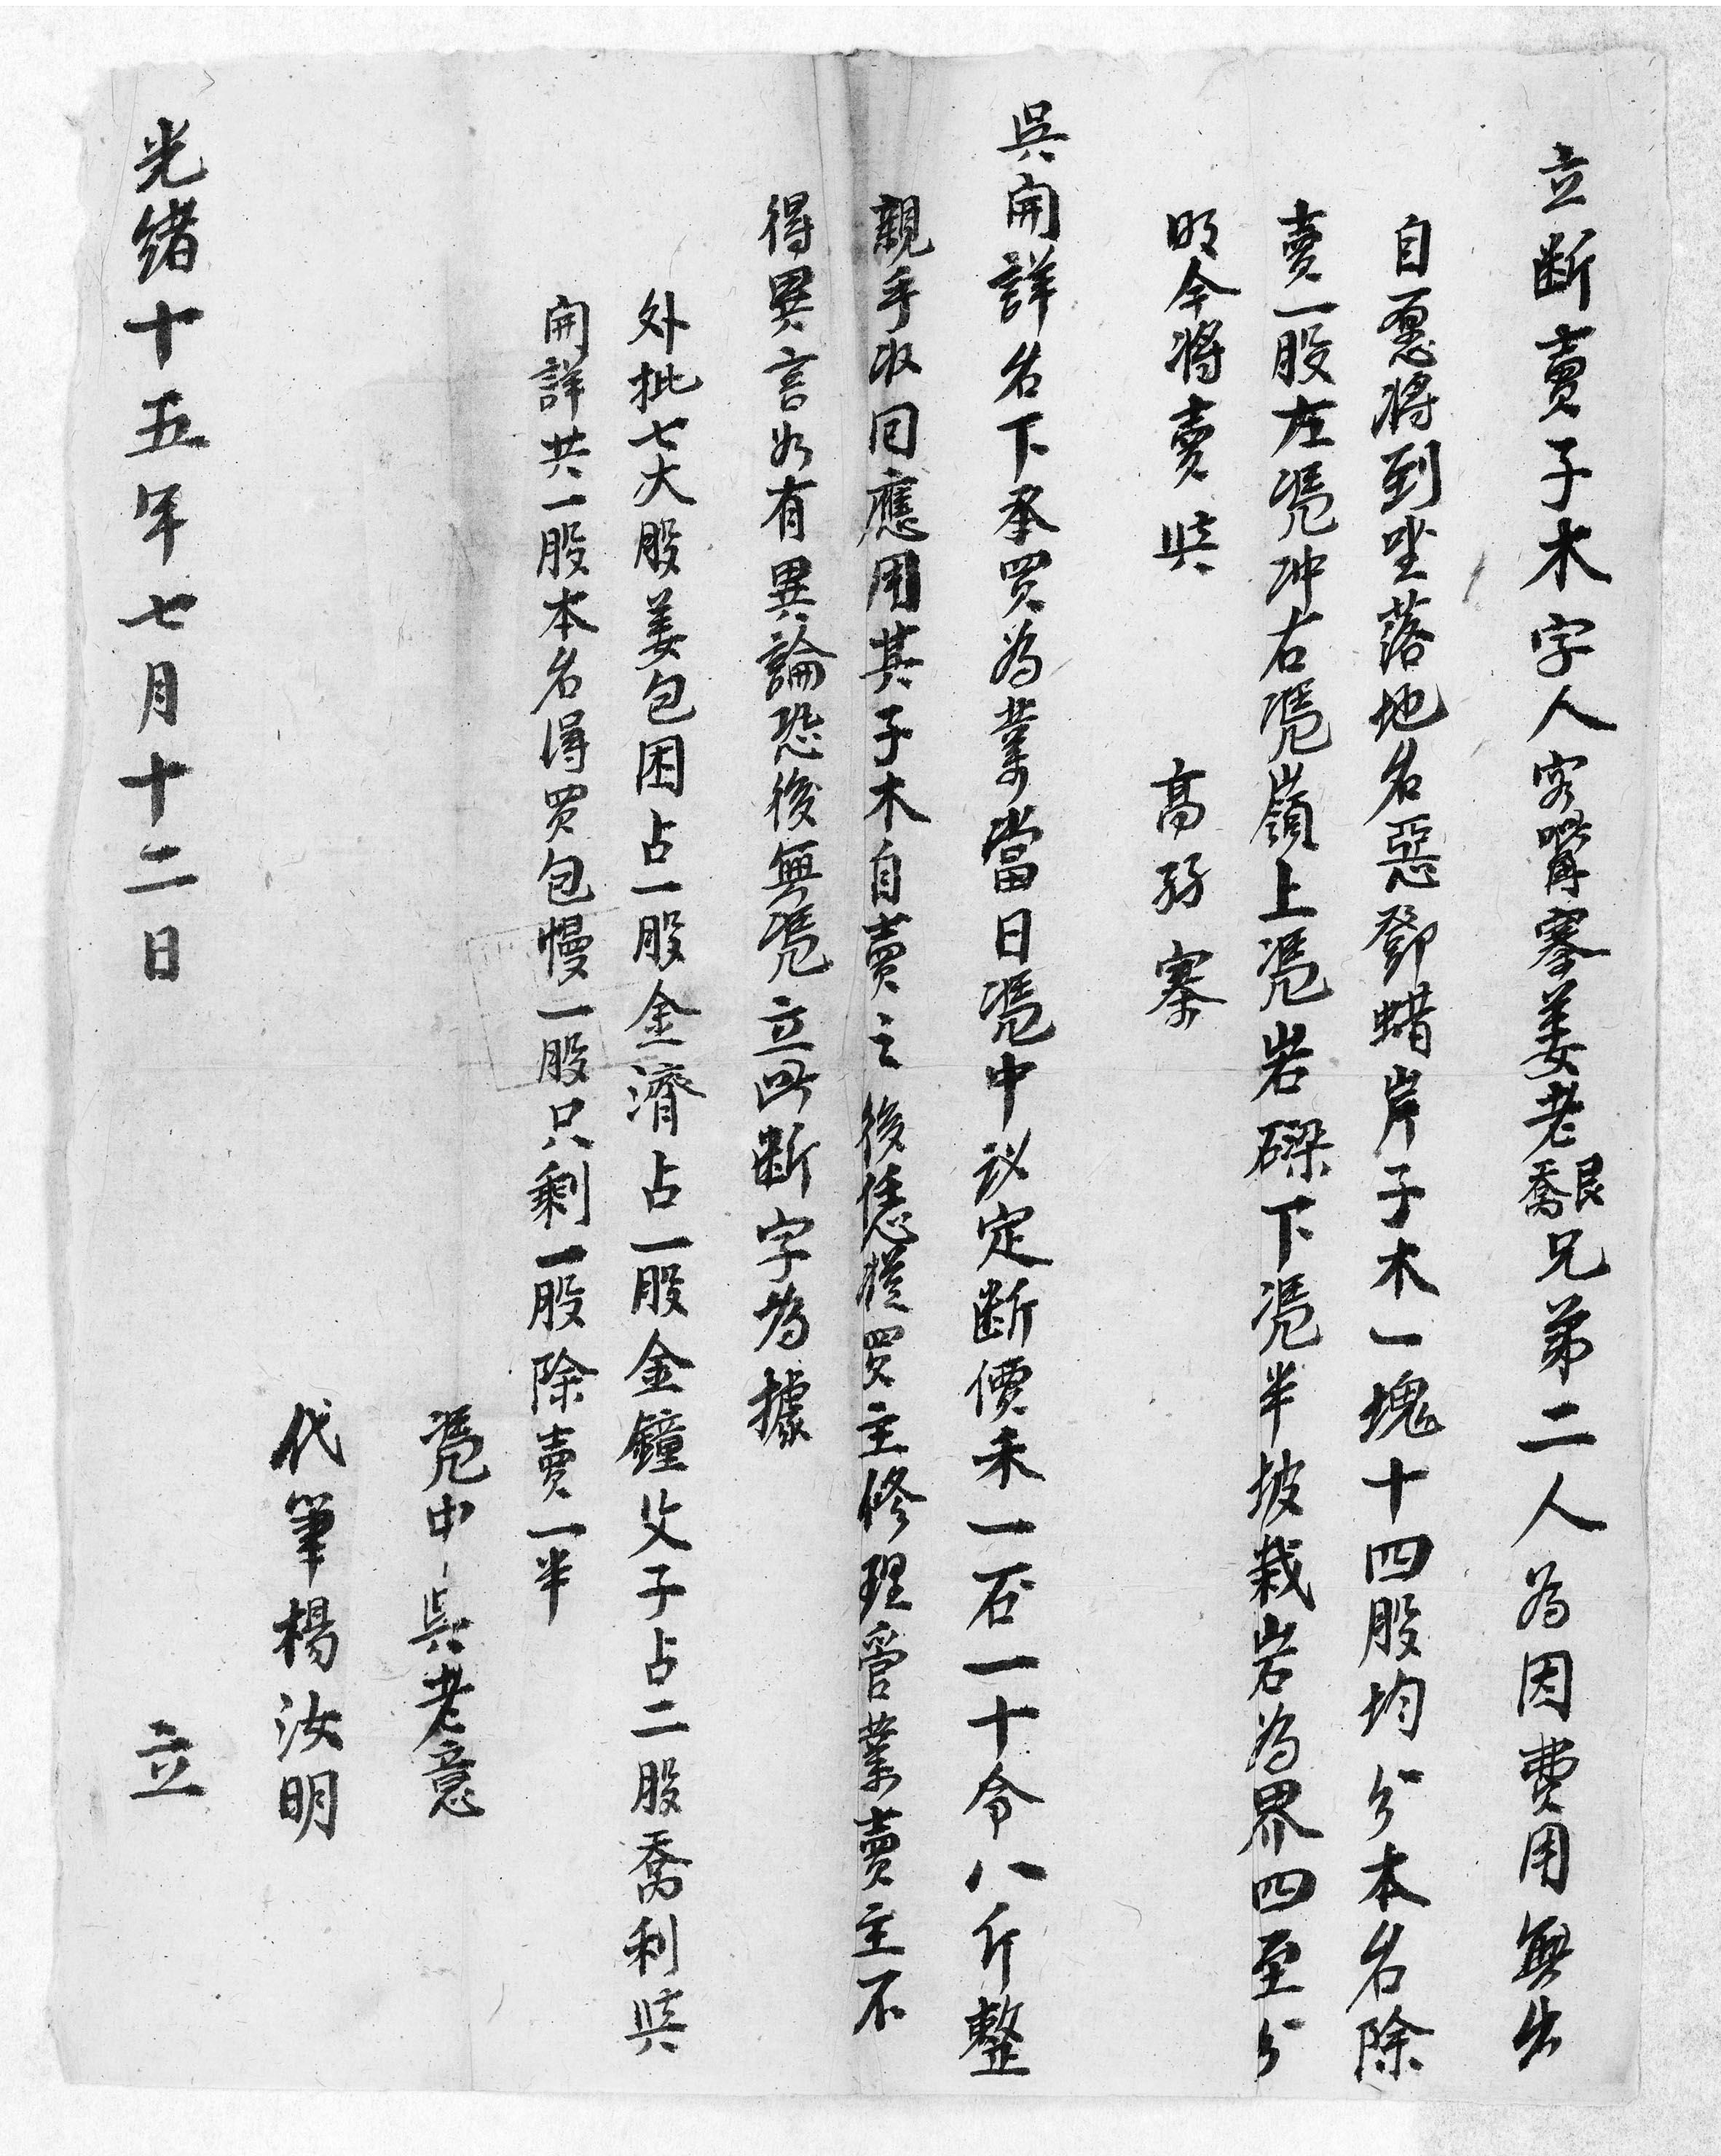 立断賣子木字人寨姜老艮喬兄弟二人為因費用無出
自愿將到坐落地名惡鄧蜡岸子木一塊十四股均分本名除
賣一股左凴冲右凴嶺上凴岩磜下凴半坡栽岩為界四至分
明今將賣與
高孖寨
吳開詳名下承買為業當日凴中议定断價禾一石一十令八斤整
親手收回應用其子木自賣之後恁慿買主修理管業賣主不
得異言如有異論恐後無凴立此断字為據
外批七大股姜包困占一股金濟占一股金鐘父子占二股喬利與
開詳共一股本名得買包慢一股只剩一股除賣一半
凴中吳老意
代筆楊汝明
光绪十五年七月十二日 立